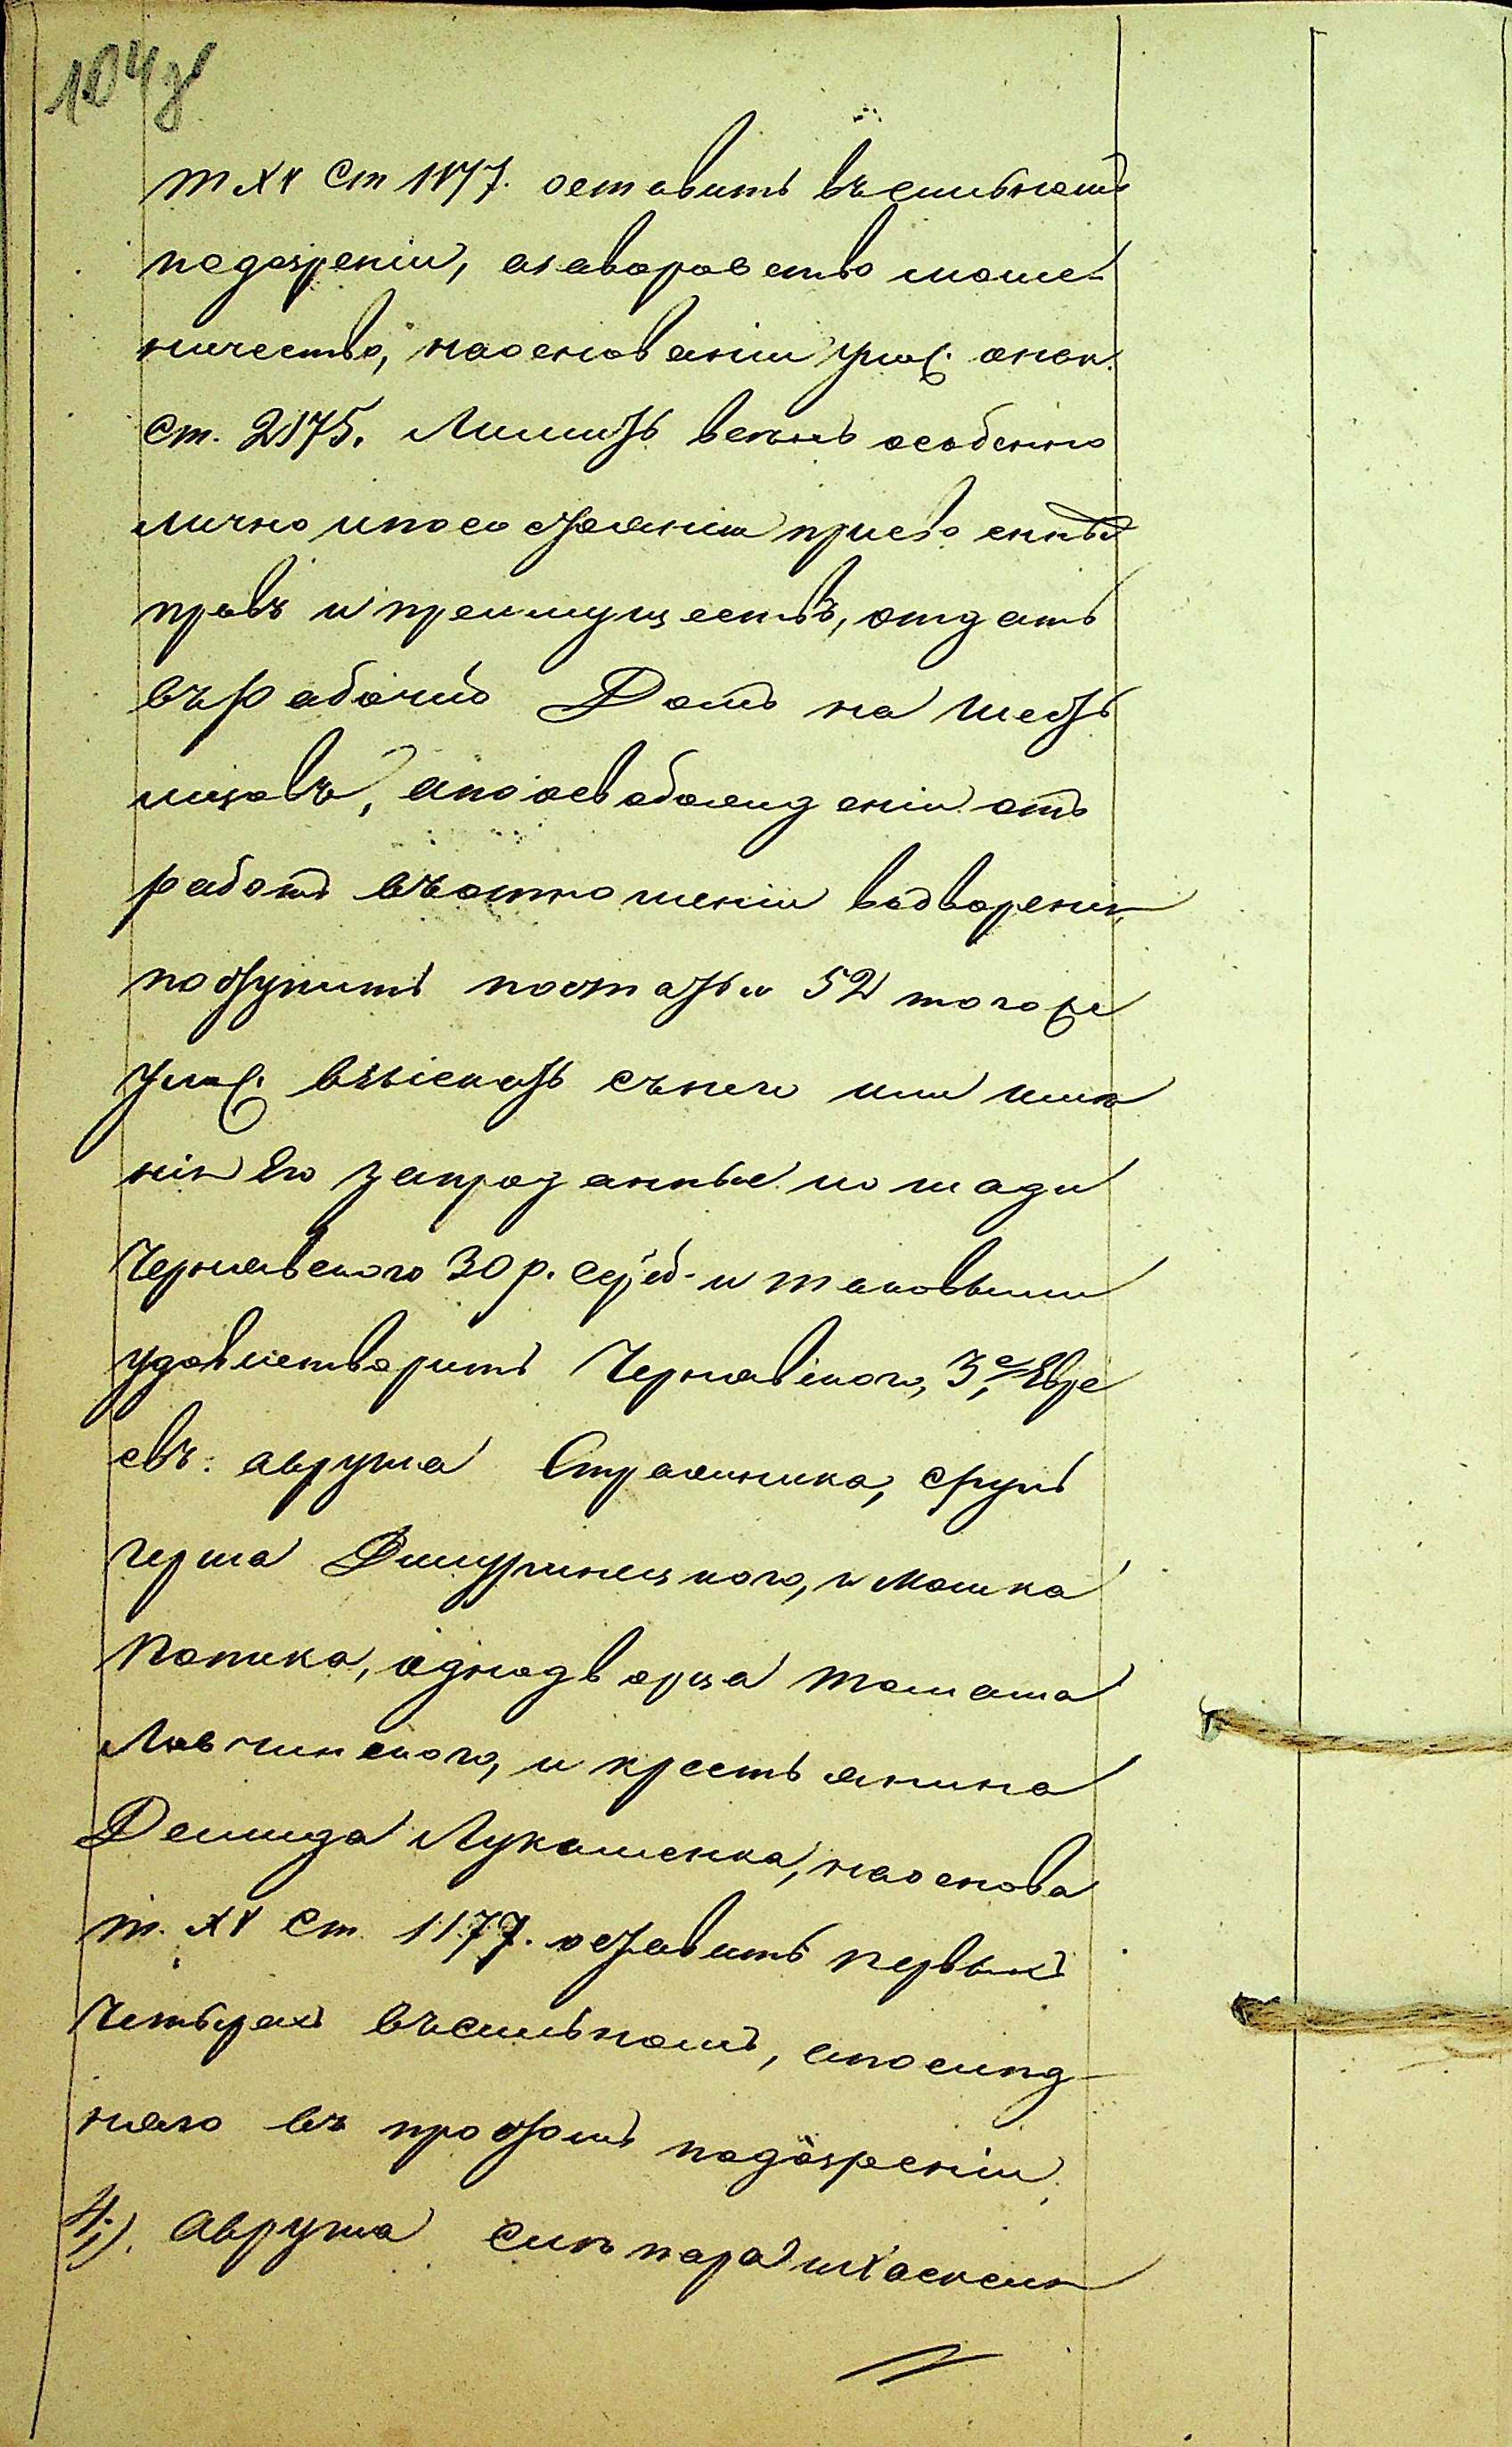 104 з
т XV Ст 1177. оставить въ сильномъ
подозреніи, аза воровство моше-
ничество, наоснованіи улож. о нак.
Ст. 2175. Лишить всѣхъ особенно
лично и по состоянію присвоенныхъ
правъ и преимуществъ, отдать
въ рабочій Домъ на шесть
мѣсяцовъ, а по освобожденіи отъ
работъ въ отношеніи водворенія
поступить по статьи 52 того же
улож. взыскать съ него или имѣ
нія Его за проданные лошади
Чернявского 30 р. сереб. и таковыми
удовлетворить Чернявского, 3,е Евре
евъ: Авруша Стрельника, Сруль
герша Джуринецкого, и Мошка
Попика, однодворца Томаша
Левчинского, и крестьянина
Демида Лукашенка, на основа
т. XV Ст. 1177. оставить первыхъ
четырехъ въ сильномъ, а послѣд
няго въ простомъ подозреніи,
4,). Авруша